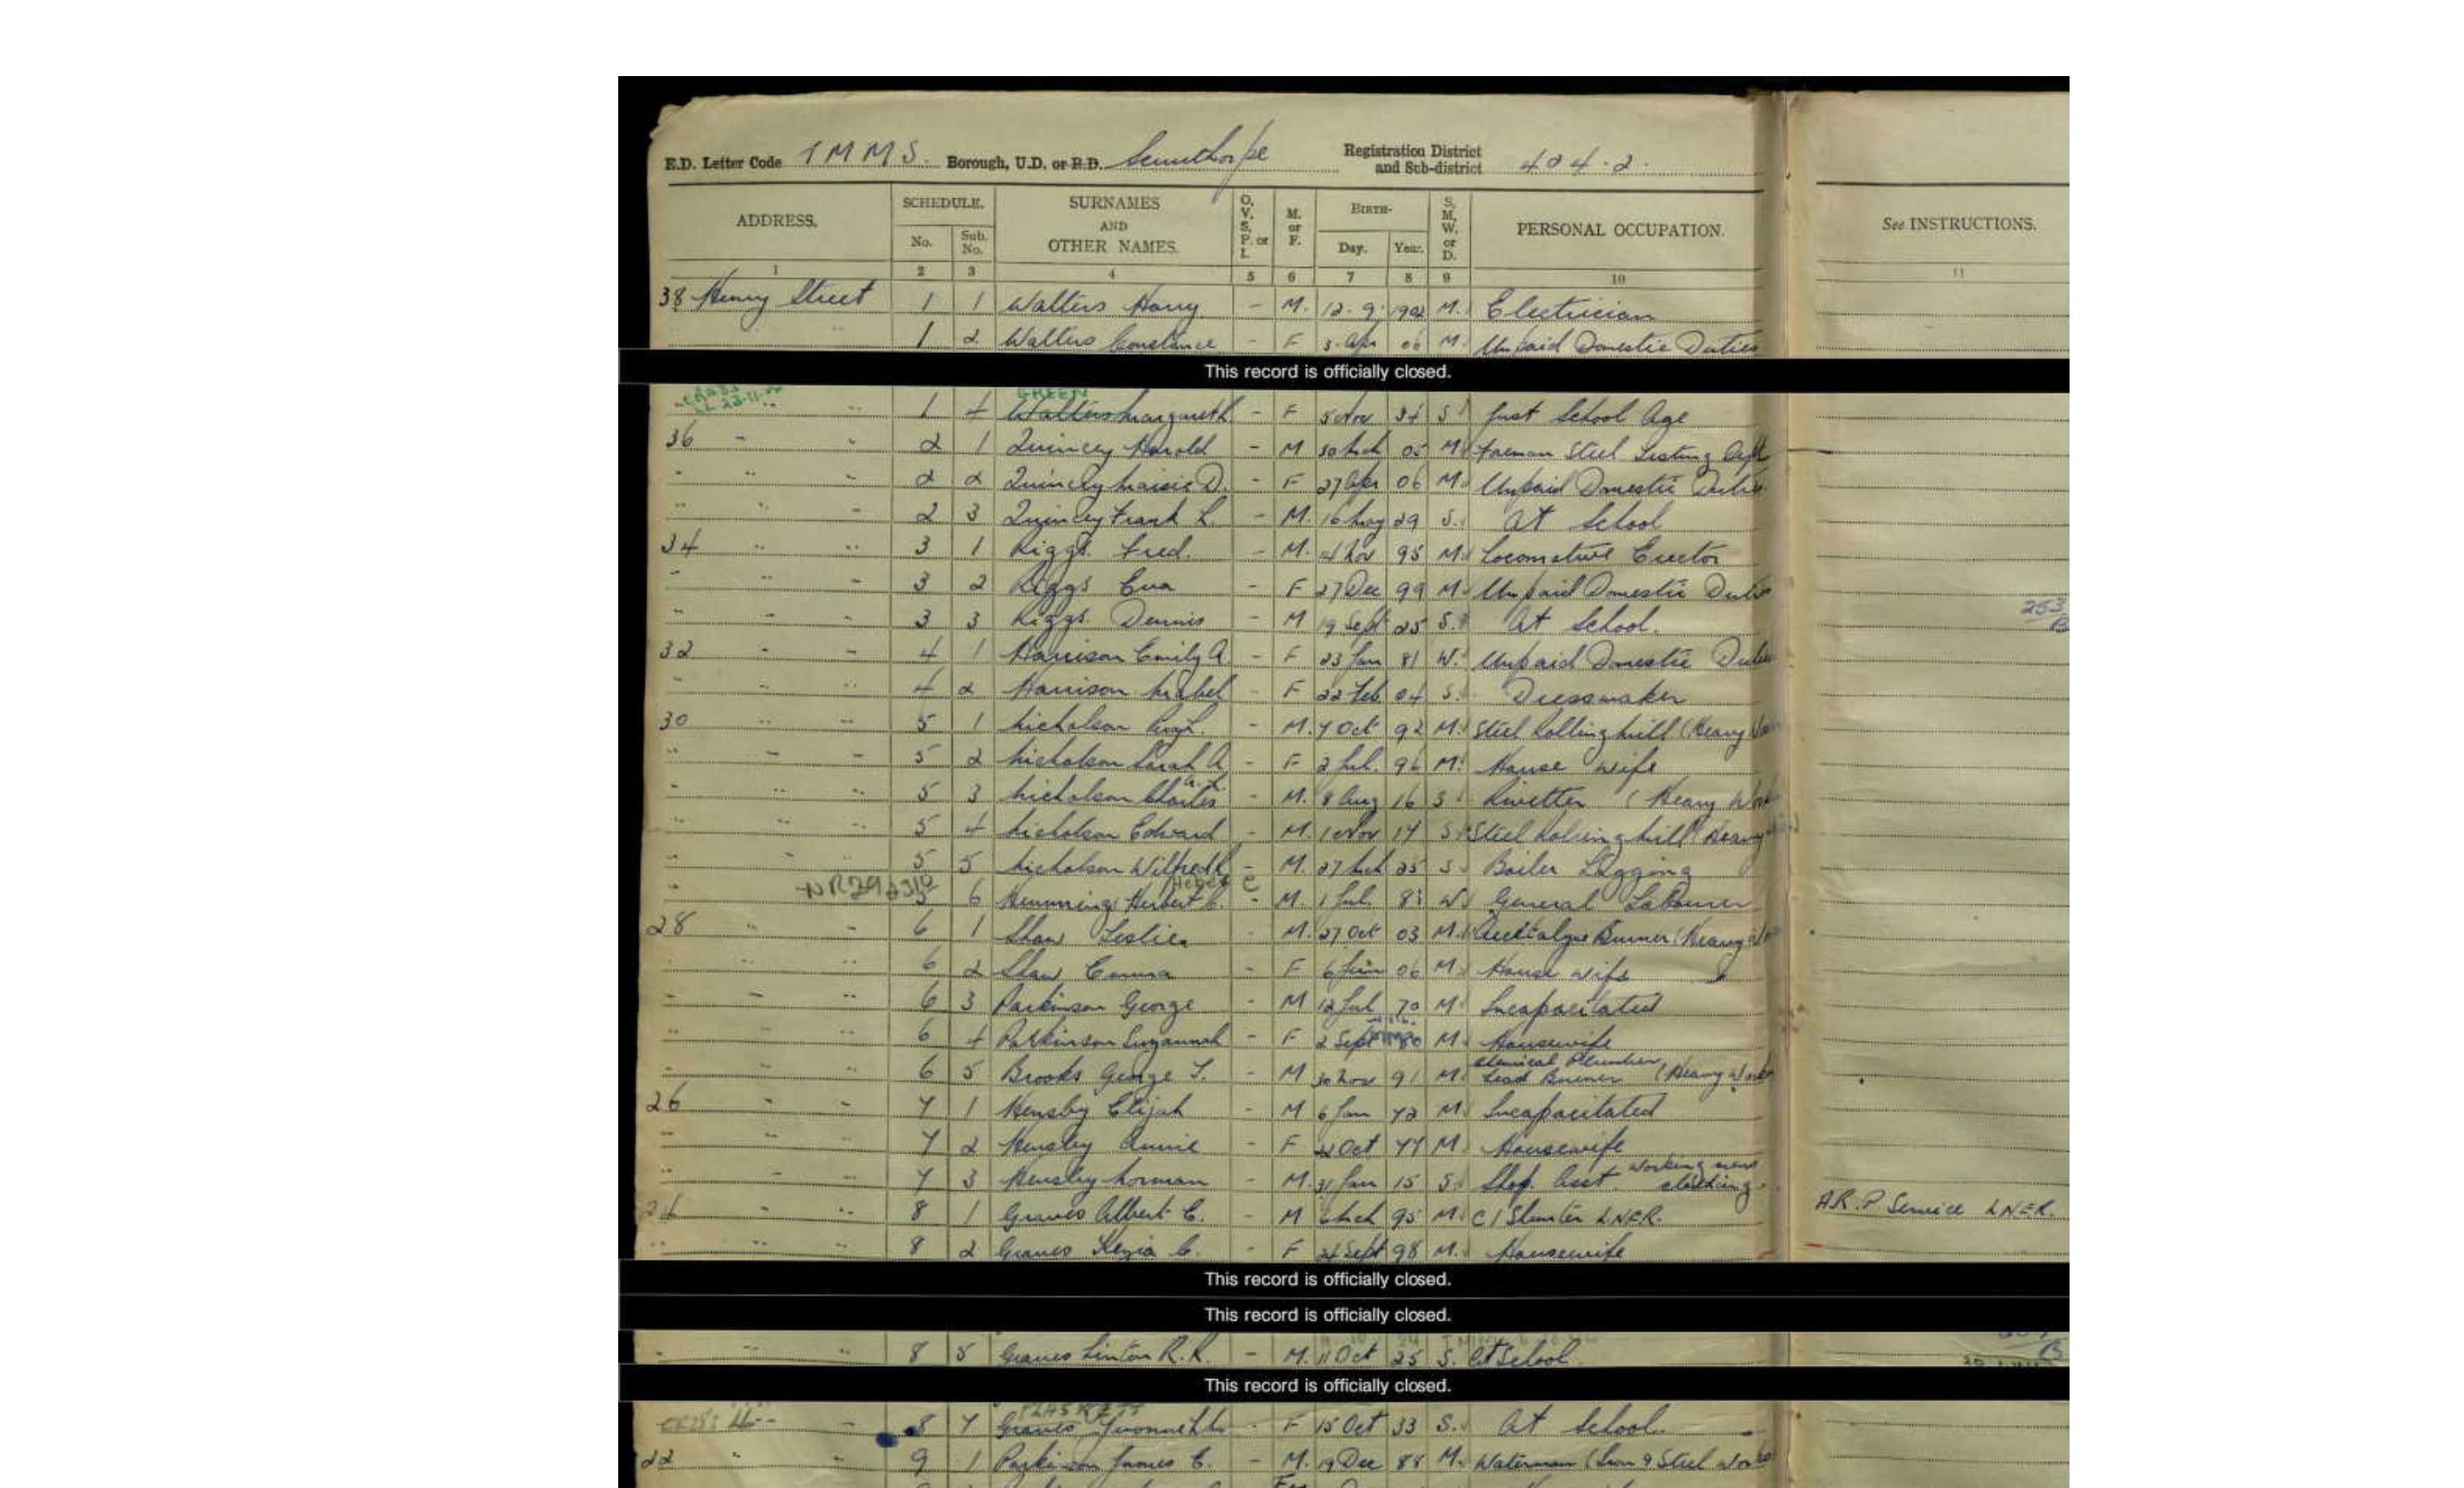 E.D. Letter Code TMMS. Borough, U.D. or R.D. Scunthorpe Registration District and Sub-district 404.2.
ADDRESS. SCHEDULE. No. Sub. No. SURNAMES AND OTHER NAMES. O, V, S, P, or I. M. or F. BIRTH- Day. Year. S, M, W, or D. PERSONAL OCCUPATION. See INSTRUCTIONS.
1 2 3 4 5 6 7 8 9 10 11
38 Henry Street 1 1 Walters Harry - M. 12.9. 1902 M. Electrician
" 1 2 Walters Constance - F 3 Apr 06 M. Unpaid Domestic Duties
This record is officially closed.
GREEN
1 4 Walters Margareth - F 5 Nov 34 S Just School Age
36 " " 2 1 Quincey Harold - M 30 Mch 05 M Foreman Steel Testing Dept
" " " 2 2 Quincey Maisie D. - F 27 Apr 06 M. Unpaid Domestic Duties
" " " 2 3 Quincey Frank L. - M. 16 May 29 S. At School
34 " " 3 1 Riggs Fred. - M. 4 Nov 95 M. Locomotive Erector
" " " 3 2 Riggs Eva - F 27 Dec 99 M Unpaid Domestic Duties
" " " 3 3 Riggs Dennis - M 19 Sept 25 S. At School. 253 B
32 " " 4 1 Harrison Emily A - F 23 Jan 81 W. Unpaid Domestic Duties
" " " 4 2 Harrison Mabel - F 22 Feb 04 S. Dressmaker
30 " " 5 1 Nicholson - M. 7 Oct 92 M. Steel Rolling Mill (Heavy
" " " 5 2 Nicholson Sarah A - F 2 Jul. 96 M. House wife
" " " 5 3 Nicholson Charles - M. 8 Aug 16 S Rivetter (Heavy Work
" " " 5 4 Nicholson Edward - M. 1 Nov 17 S. Steel Rolling Mill (Heavy
" " " 5 5 Nicholson Wilfred - M. 27 Mch 25 S. Boiler Lagging
" 5 6 Hemmings Herbert C. - M. 1 Jul. W. General Labourer
28 " " 6 1 Shaw Leslie M. 27 Oct 03 M. Burner (Heavy
" " 6 2 Shaw Emma - F 6 Jun 06 M. House wife
" " " 6 3 Parkinson George - M 12 Jul 70 M Incapacitated
" " " 6 4 Parkinson Suzannah - F 2 Sept 80 M. Housewife
" " " 6 5 Brooks George T. - M 30 Nov 91 M. Chemical Plumber Lead Burner (Heavy Work
26 " " 7 1 Hensby Elijah - M 6 Jan 72 M Incapacitated
" " " 7 2 Hensby Annie - F 22 Oct 77 M. Housewife
" " " 7 3 Hensby Norman - M. 31 Jan 15 S. Shop Asst. Working mens clothing.
24 " " 8 1 Graves Albert E. - M 6 Mch 95 M. LNER. A.R.P Service LNER.
" " " 8 2 Graves Kezia C. - F 24 Sept 98 M. Housewife
This record is officially closed.
This record is officially closed.
" " " 8 5 Graves Linton R.R. - M. 11 Oct 25 S. At School. B
This record is officially closed.
PLASKETT
8 7 Graves - F 15 Oct 33 S. At School.
22 " " 9 1 Parkinson James E. - M. 19 Dec 88 M. Waterman (Iron & Steel Works